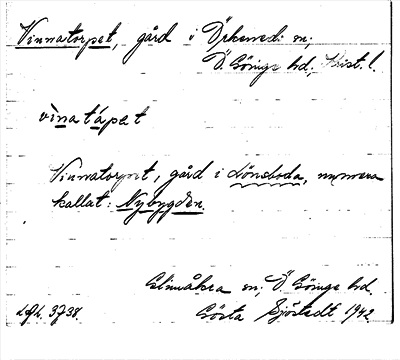 Vinnatorpet, gård i Örkeneds sn;
Ö. Göinge hd., Krist. l.
vìnatápet
Vinnatorpet, gård i Lönsboda, numera
kallat: Nybygden.
Glimåkra sn; Ö. Göinge hd.
Lgh. 3738. Gösta Sjöstedt 1942